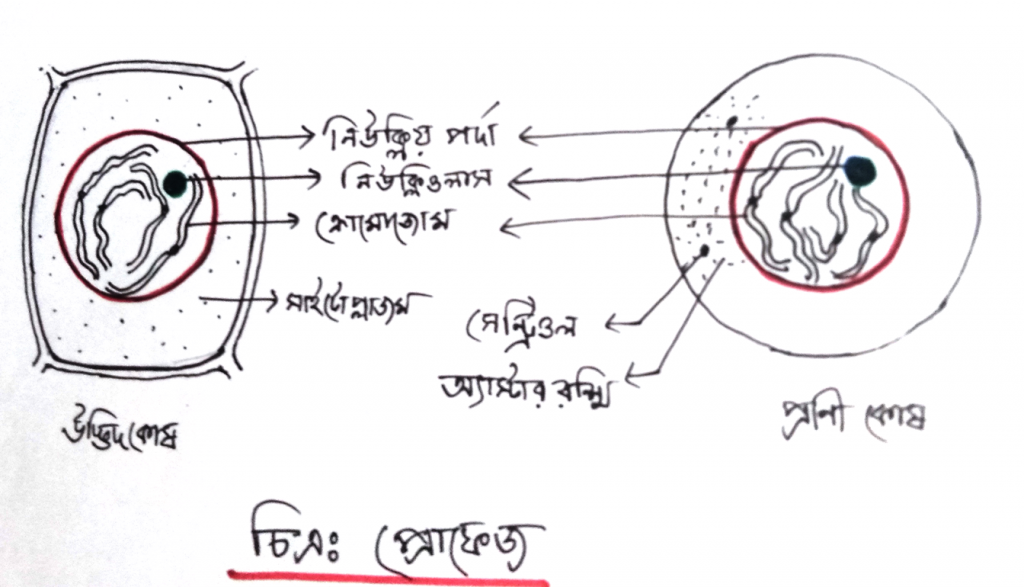 নিউক্লিয় পর্দা
নিউক্লিওলাস
ক্রোমোজোম
সাইটোপ্লাজম
সেন্ট্রিওল
অ্যাস্টার রশ্মি
উদ্ভিদ কোষ
প্রাণী কোষ
চিত্রঃ প্রোফেজ